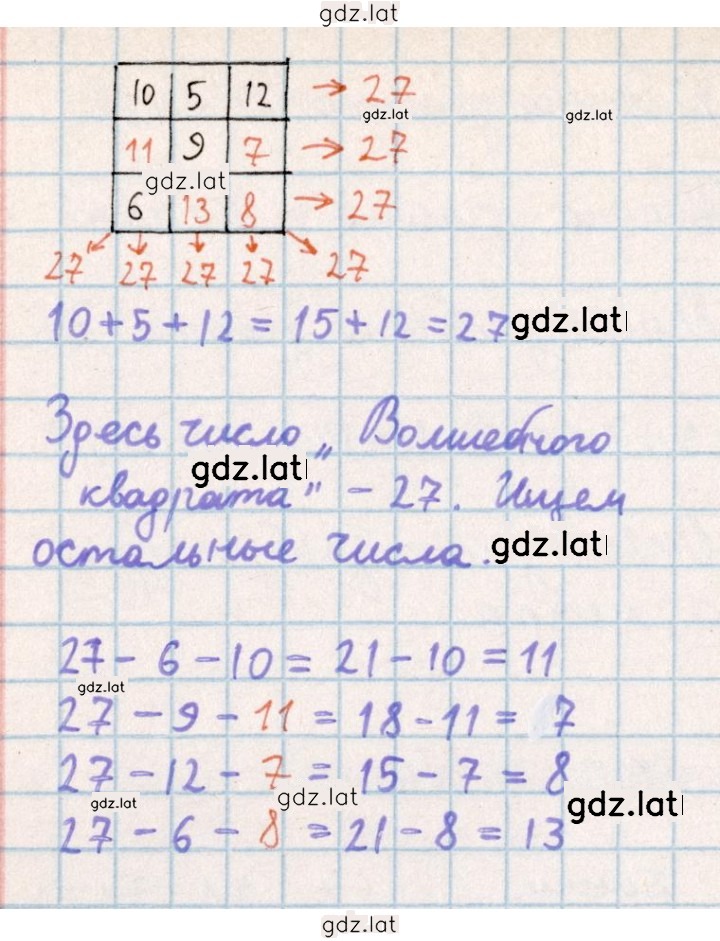 gdz.lat
10 5 12 → 27
gdz.lat
gdz.lat
11 9 7 → 27
gdz.lat
6 13 8 → 27
27 27 27 27 27
10 + 5 + 12 = 15 + 12 = 27
gdz.lat
Здесь число „ Волшебного
gdz.lat
квадрата" – 27. Ищем
остальные числа.
gdz.lat
27 – 6 – 10 = 21 – 10 = 11
gdz.lat
27 – 9 – 11 = 18 – 11 = 7
27 – 12 – 7 = 15 – 7 = 8
gdz.lat
gdz.lat
gdz.lat
27 – 6 – 8 = 21 – 8 = 13
gdz.lat